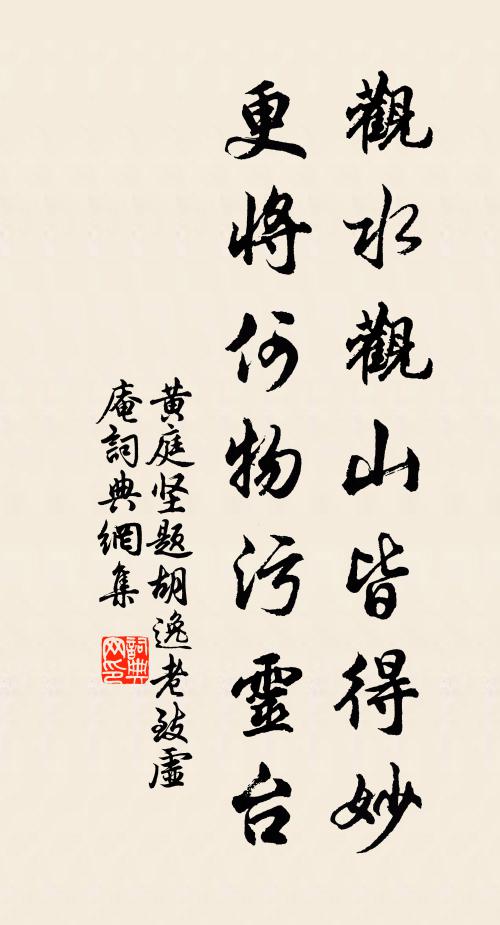 觀水觀山皆得妙
更將何物污靈台
黄庭坚题胡逸老致虛
庵詞典網集
詞典
网印